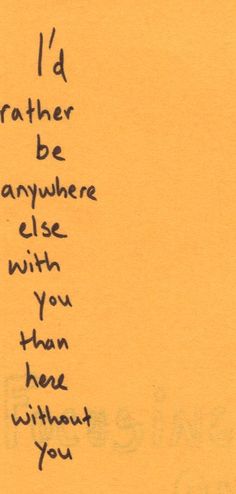 I'd
rather
be
anywhere
else
with
you
than
here
without
you
Focusing